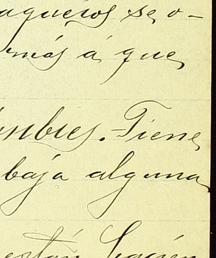 aqueros se o-
más á que
mbres. Tiene
baja alguna
están hacien